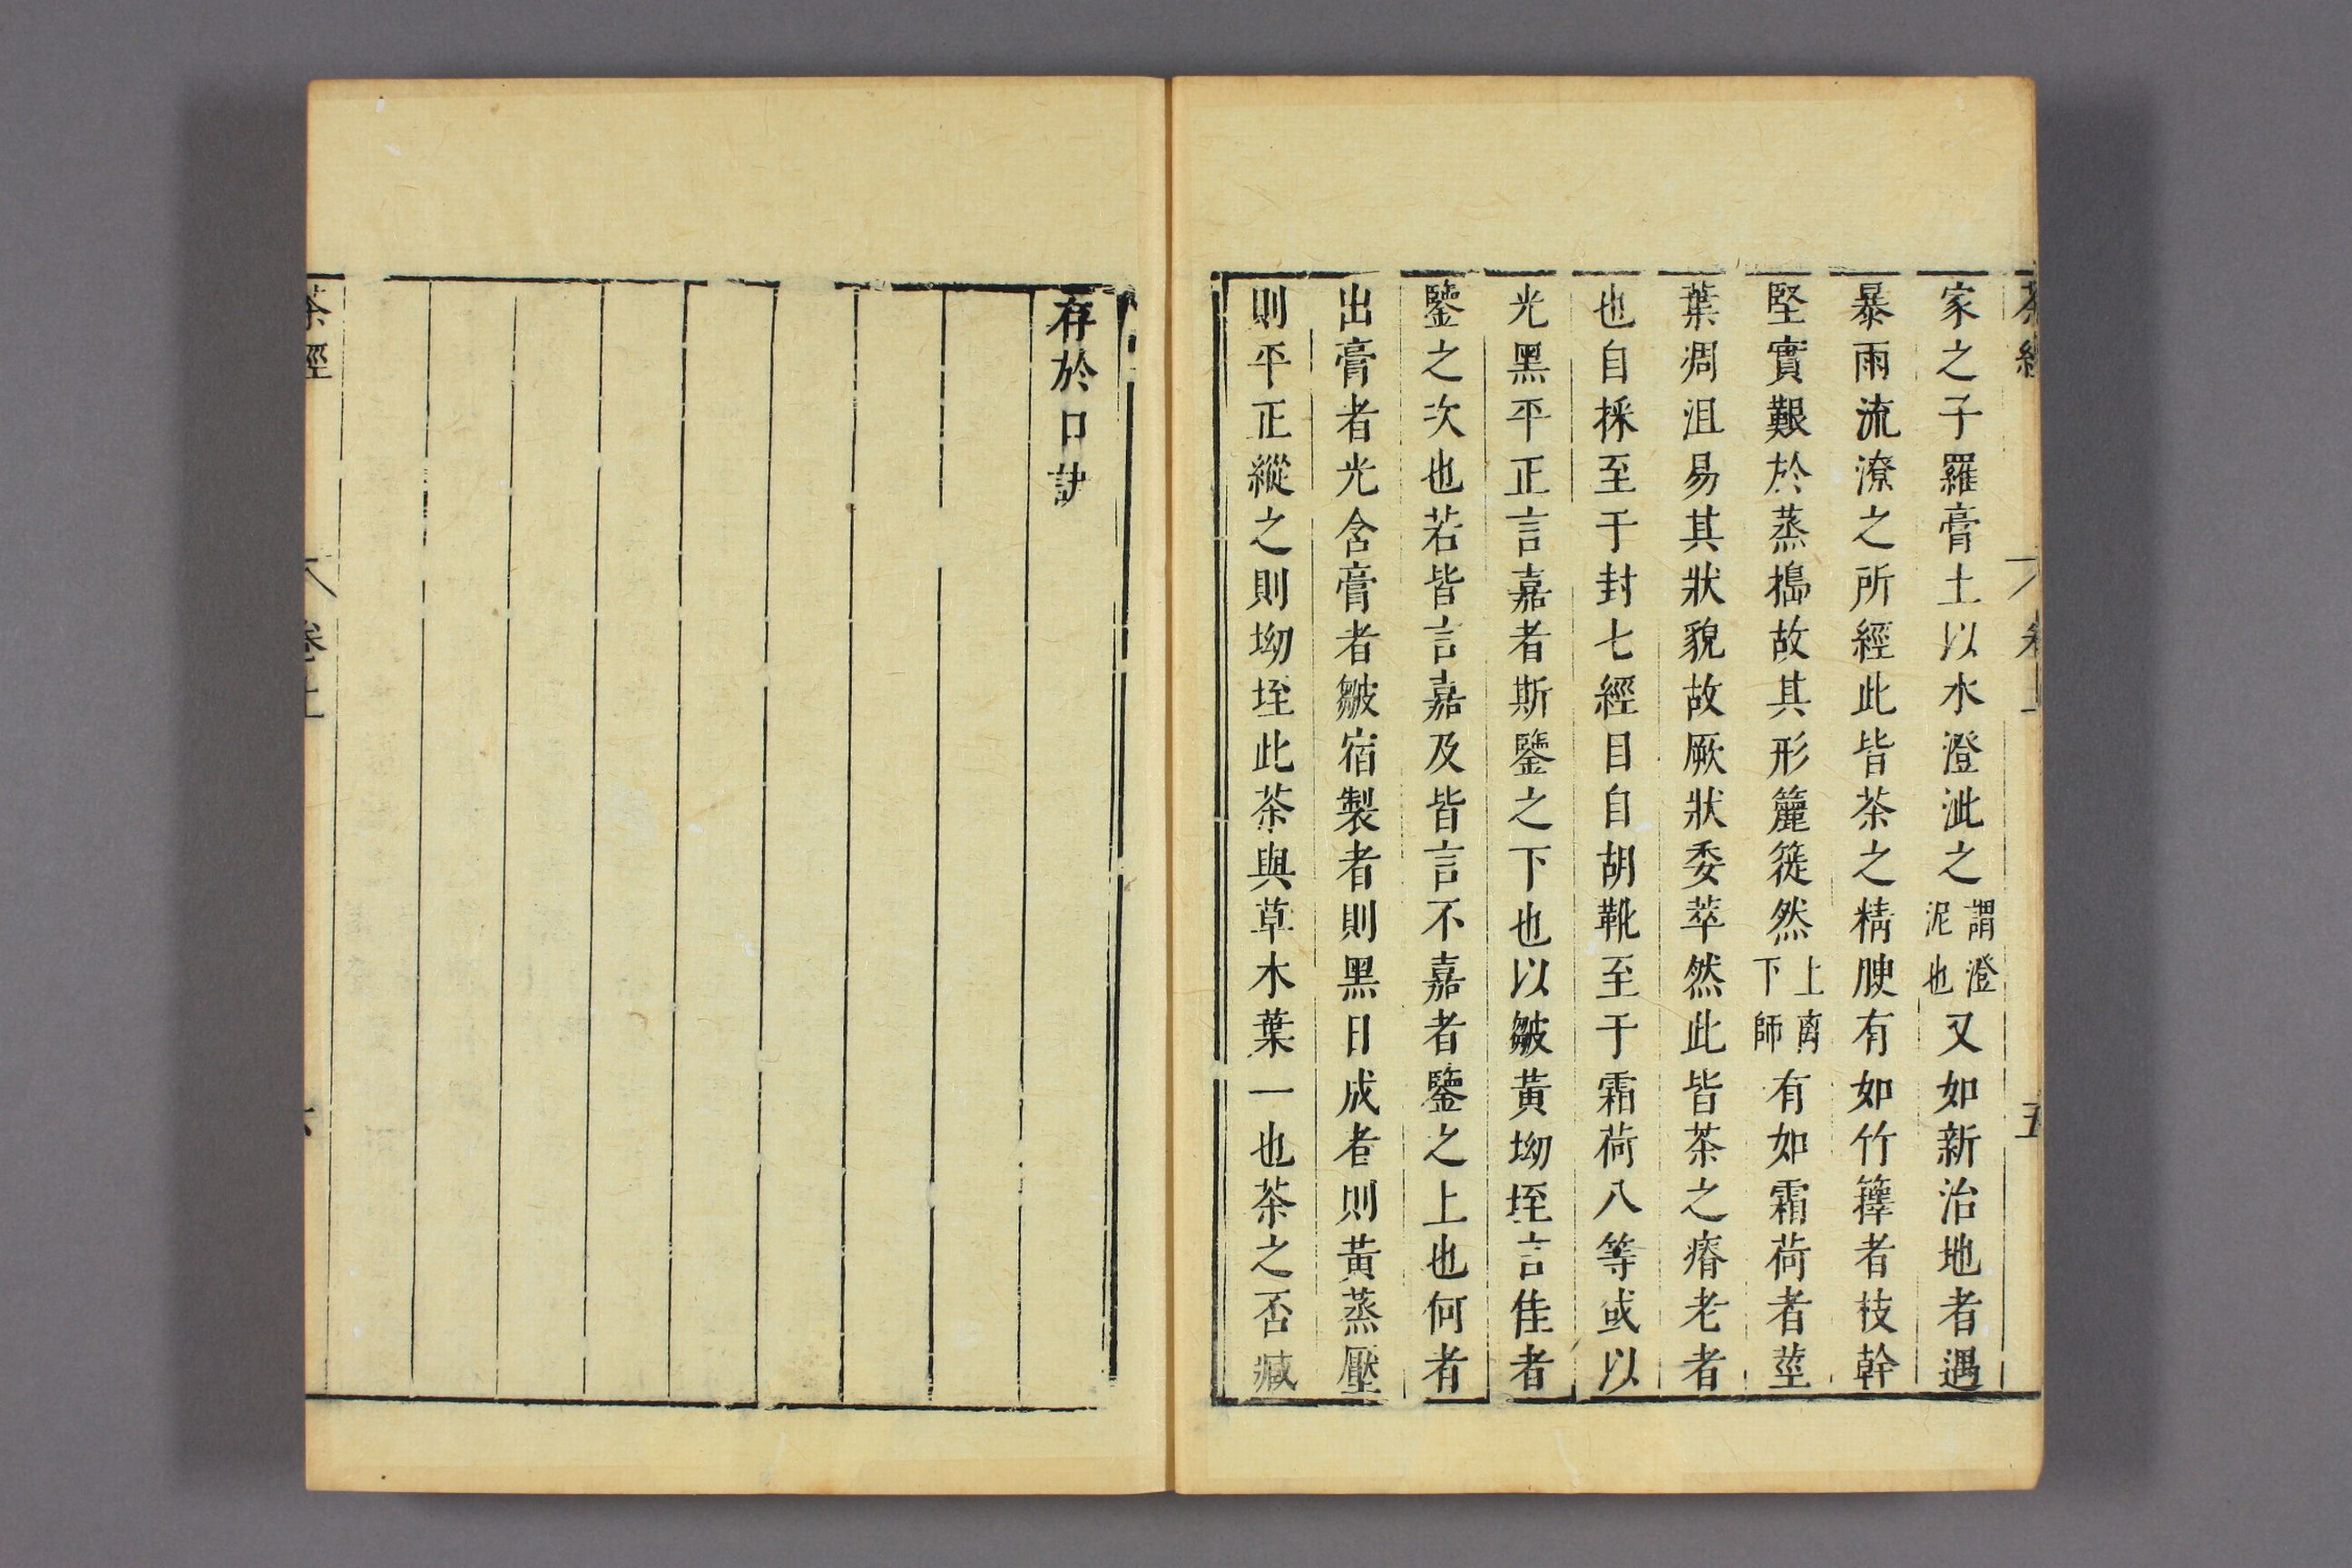 茶經 卷上 五
家之子羅膏土以水澄泚之謂澄泥也又如新治地者遇
暴雨流潦之所經此皆茶之精腴有如竹籜者枝幹
堅實艱於蒸搗故其形簏簁然上离下師有如霜荷者莖
葉凋沮易其狀貌故厥狀委萃然此皆茶之瘠老者
也自採至于封七經目自胡靴至于霜荷八等或以
光黑平正言嘉者斯鑒之下也以皺黃坳垤言佳者
鑒之次也若皆言嘉及皆言不嘉者鑒之上也何者
出膏者光含膏者皺宿製者則黑日成者則黃蒸壓
則平正縱之則坳垤此茶與草木葉一也茶之否臧
存於口訣
茶經 卷上